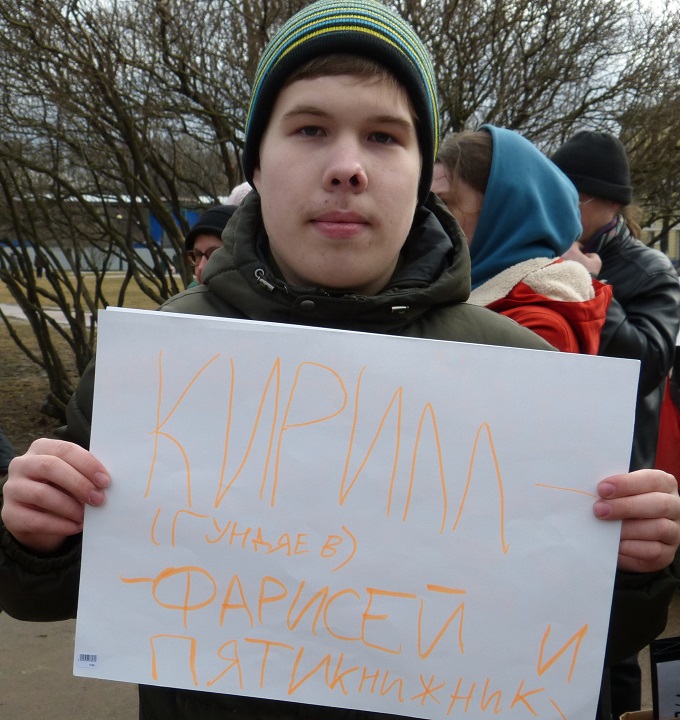 КИРИЛЛ –
(ГУНДЯЕВ)
– ФАРИСЕЙ И
ПЯТИКНИЖНИК